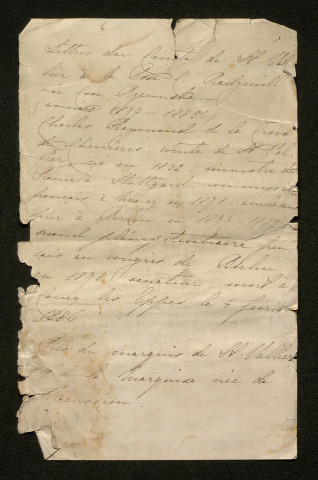 Lettres du Comte de St Val
lier à la Psse C. Radziwill
née Ctsse Rzewuska
années 1879 - 1885
Charles Raymond de la Croix
de Chevrières, comte de St Val
lier né en 1833, ministre de
France à Stuttgart, commissaire
français à Nancy en 1871, ambassa
deur à Berlin en 1877-1881
second plénipotentiaire fran
çais au congrès de Berlin
en 1878, sénateur, mort à
Coucy les Eppes le 4 février
1886
Fils du marquis de St Vallier
et de la marquise née de